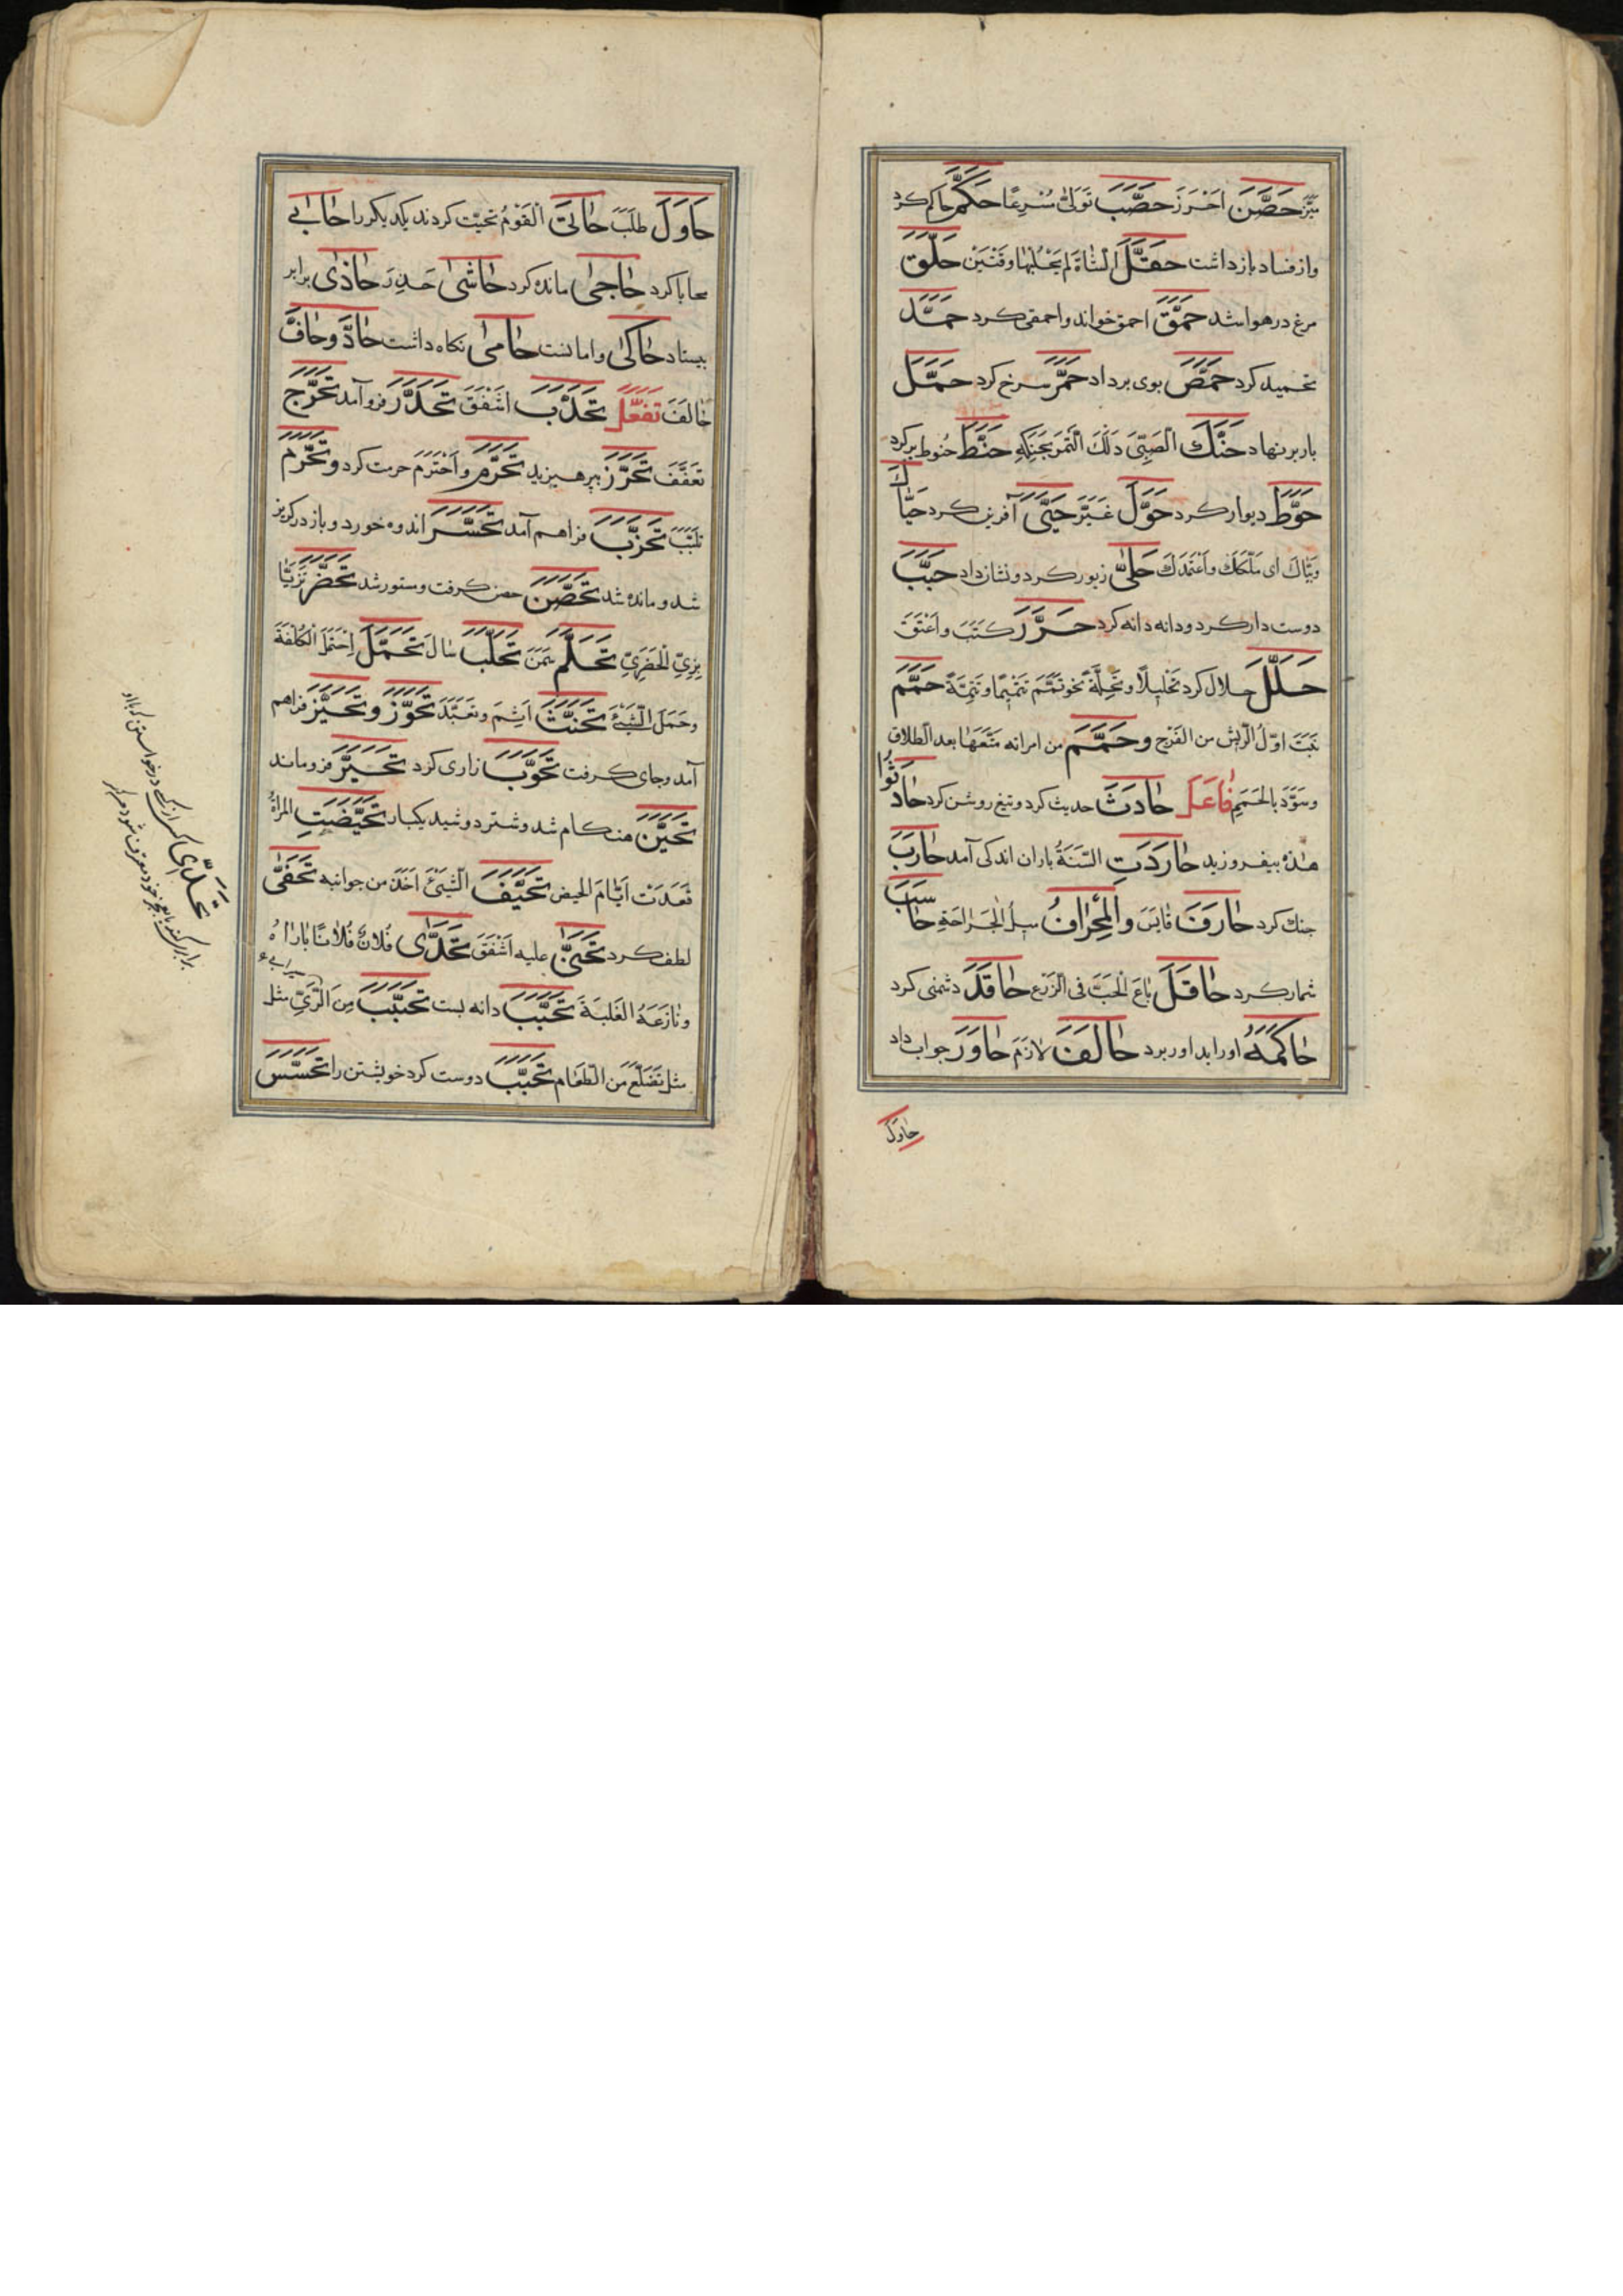 مَيَّزَ حَصَّنَ اَحْرَزَ حَصَّبَ تَوَلّیٰ مُسْرِعًا حَكَّمَ حاكم كرد
واز فساد باز داشت حَفَّلَ الشّاةَ لم يَحْلُبْها وقتَيْن حَلَّقَ
مرغ در هوا شد حَمَّقَ احمق خواند واحمقی كرد حَمَّدَ
تحميد كرد حَمَّصَ بوی برداد حَمَّرَ سرخ كرد حَمَّلَ
بار بر نهاد حَنَّكَ الصَّبِیَّ دَلَكَ التَّمَرَ بحَنَكِهِ حَنَّطَ حنوط بر كرد
حَوَّطَ ديوار كرد حَوَّلَ غَيَّرَ حَيّیٰ آفرين كرد حَيّاكَ
وَبَيّاكَ ای مَلَّكَكَ واَعْتَمَدَكَ حَلّیٰ زيور كرد ونشان داد حَبَّبَ
دوست دار كرد ودانه دانه كرد حَرَّرَ كَتَبَ واَعْتَقَ
حَلَّلَ حلال كرد تَحْليلاً وتَحِلَّةً نحو تَمَّمَ تَتْميمًا وتَتِمَّةً حَمَّمَ
نَبَتَ اوّلُ الرّيش من الفَرْخ وحَمَّمَ من امرأته مَتَّعَها بعد الطلاق
وسَوَّدَ بالحَمَمِ فَاعَلَ حَادَثَ حديث كرد وتيغ روشن كرد حَادَثُوا
هذه بيفروزيد حَارَدَتِ السَّنَةُ باران اندكی آمد حَارَبَ
جنك كرد حَارَفَ قايَسَ والمِحْرافُ ميلُ الجَراحَةِ حَاسَبَ
شمار كرد حَاقَلَ باعَ الحَبَّ فی الزَّرْع حَاقَدَ دشمنی كرد
حَاكَمَهُ اورا بداور برد حَالَفَ لازَمَ حَاوَرَ جواب داد
حاوَلَ
حَاوَلَ طَلَبَ حَابَی القَوْمُ تحيّت كردند يكديكر را حَابیٰ
محابا كرد حَاجیٰ مانده كرد حَاشیٰ حَذِرَ حَاذیٰ برابر
بيستاد حَاكیٰ واماننت حَامیٰ نكاه داشت حَادَّ وحَافَّ
خالَفَ تَفَعَّلَ تَحَدَّبَ اشْفَقَ تَحَدَّرَ فرو آمد تَحَرَّجَ
تَعَفَّفَ تَحَرَّزَ بپرهيزيد تَحَرَّمَ واَحْتَرَمَ حرمت كرد وتَحَزَّمَ
تَلَبَّبَ تَحَزَّبَ فراهم آمد تَحَسَّرَ اندوه خورد وباز در كريز
شد ومانده شد تَحَصَّنَ حصن كرفت ومستور شد تَحَضَّرَ تَزَيّا
بِزِیِّ الحَضَرِیِّ تَحَلَّمَ سَمَنَ تَحَلَّبَ سال تَحَمَّلَ اِحْتَمَلَ الكُلْفَةَ
وحَمَلَ الشَّیْءَ تَحَنَّثَ اَثِمَ وتَعَبَّدَ تَحَوَّزَ وتَحَيَّزَ فراهم
آمد وجای كرفت تَحَوَّبَ زاری كرد تَحَيَّرَ فرو ماند
تَحَيَّنَ هنكام شد وشتر دوشيد يكبار تَحَيَّضَتِ المرأةُ
قَعَدَتْ اَيّامَ الحيض تَحَيَّفَ الشَّیْءَ اَخَذَ من جوانبه تَحَفّیٰ
لطف كرد تَحَنّیٰ عليه اَشْفَقَ تَحَدّیٰ فُلانٌ فُلانًا باراهُ
ونازَعَهُ الغَلَبَةَ تَحَبَّبَ دانه بست تَحَبَّبَ مِنَ الرّیِّ مثل
سيرابی
مثل تَضَلَّعَ من الطعام تَحَبَّبَ دوست كرد خويشتن را تَحَسَّسَ
تَحَدّی